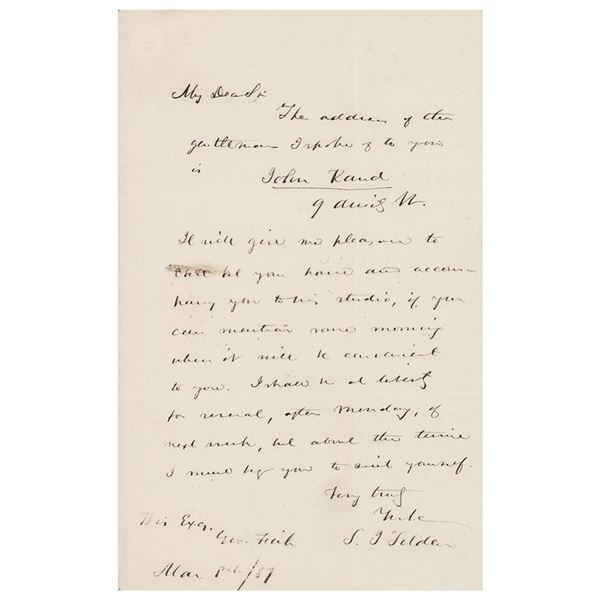 My Dear Sir
The address of the
gentleman I spoke of to you
is
John Rand
9 St.
It will give me pleasure to
call at your house and accom-
pany you to his studio, if you
can mention some morning
when it will be convenient
to you. I shall be at liberty
for several, after Monday, of
next week, but about the time
I must beg you to suit yourself.
Very truly
Yours
S. J Tilden
His Exc.
Gov. Fish
Mar 8th/51